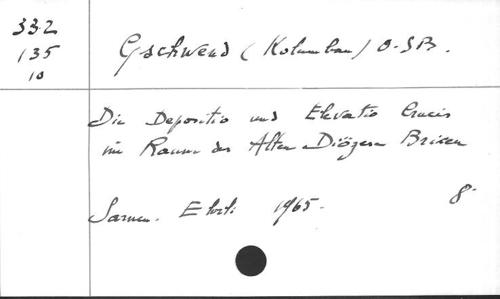 332
135
10
Gschwend (Kolumban) O.S.B.
Die Depositio und Elevatio Crucis
im Raum der Alten Diözese Brixen
Sarnen. Ehrli 1965. 8°